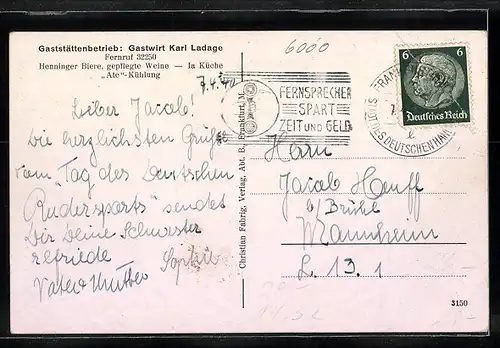 Gaststättenbetrieb: Gastwirt Karl Ladage
Fernruf 32250
Henninger Biere, gepflegte Weine — Ia Küche
„Ate"-Kühlung
6000
FERNSPRECHER
SPART
ZEIT UND GELD
6 6
Deutsches Reich
Lieber Jacob!
Die herzlichsten Grüße
vom „Tag des Deutschen
Rudersports" sendet
Dir Deine Schwester
Elfriede
Sophie
Vater Mutter
Christian Fahrig, Verlag, Abt. B. Frankfurt/M.
Herrn
Jacob Hauff
b/ Brühl
Mannheim
L. 13. 1
3150